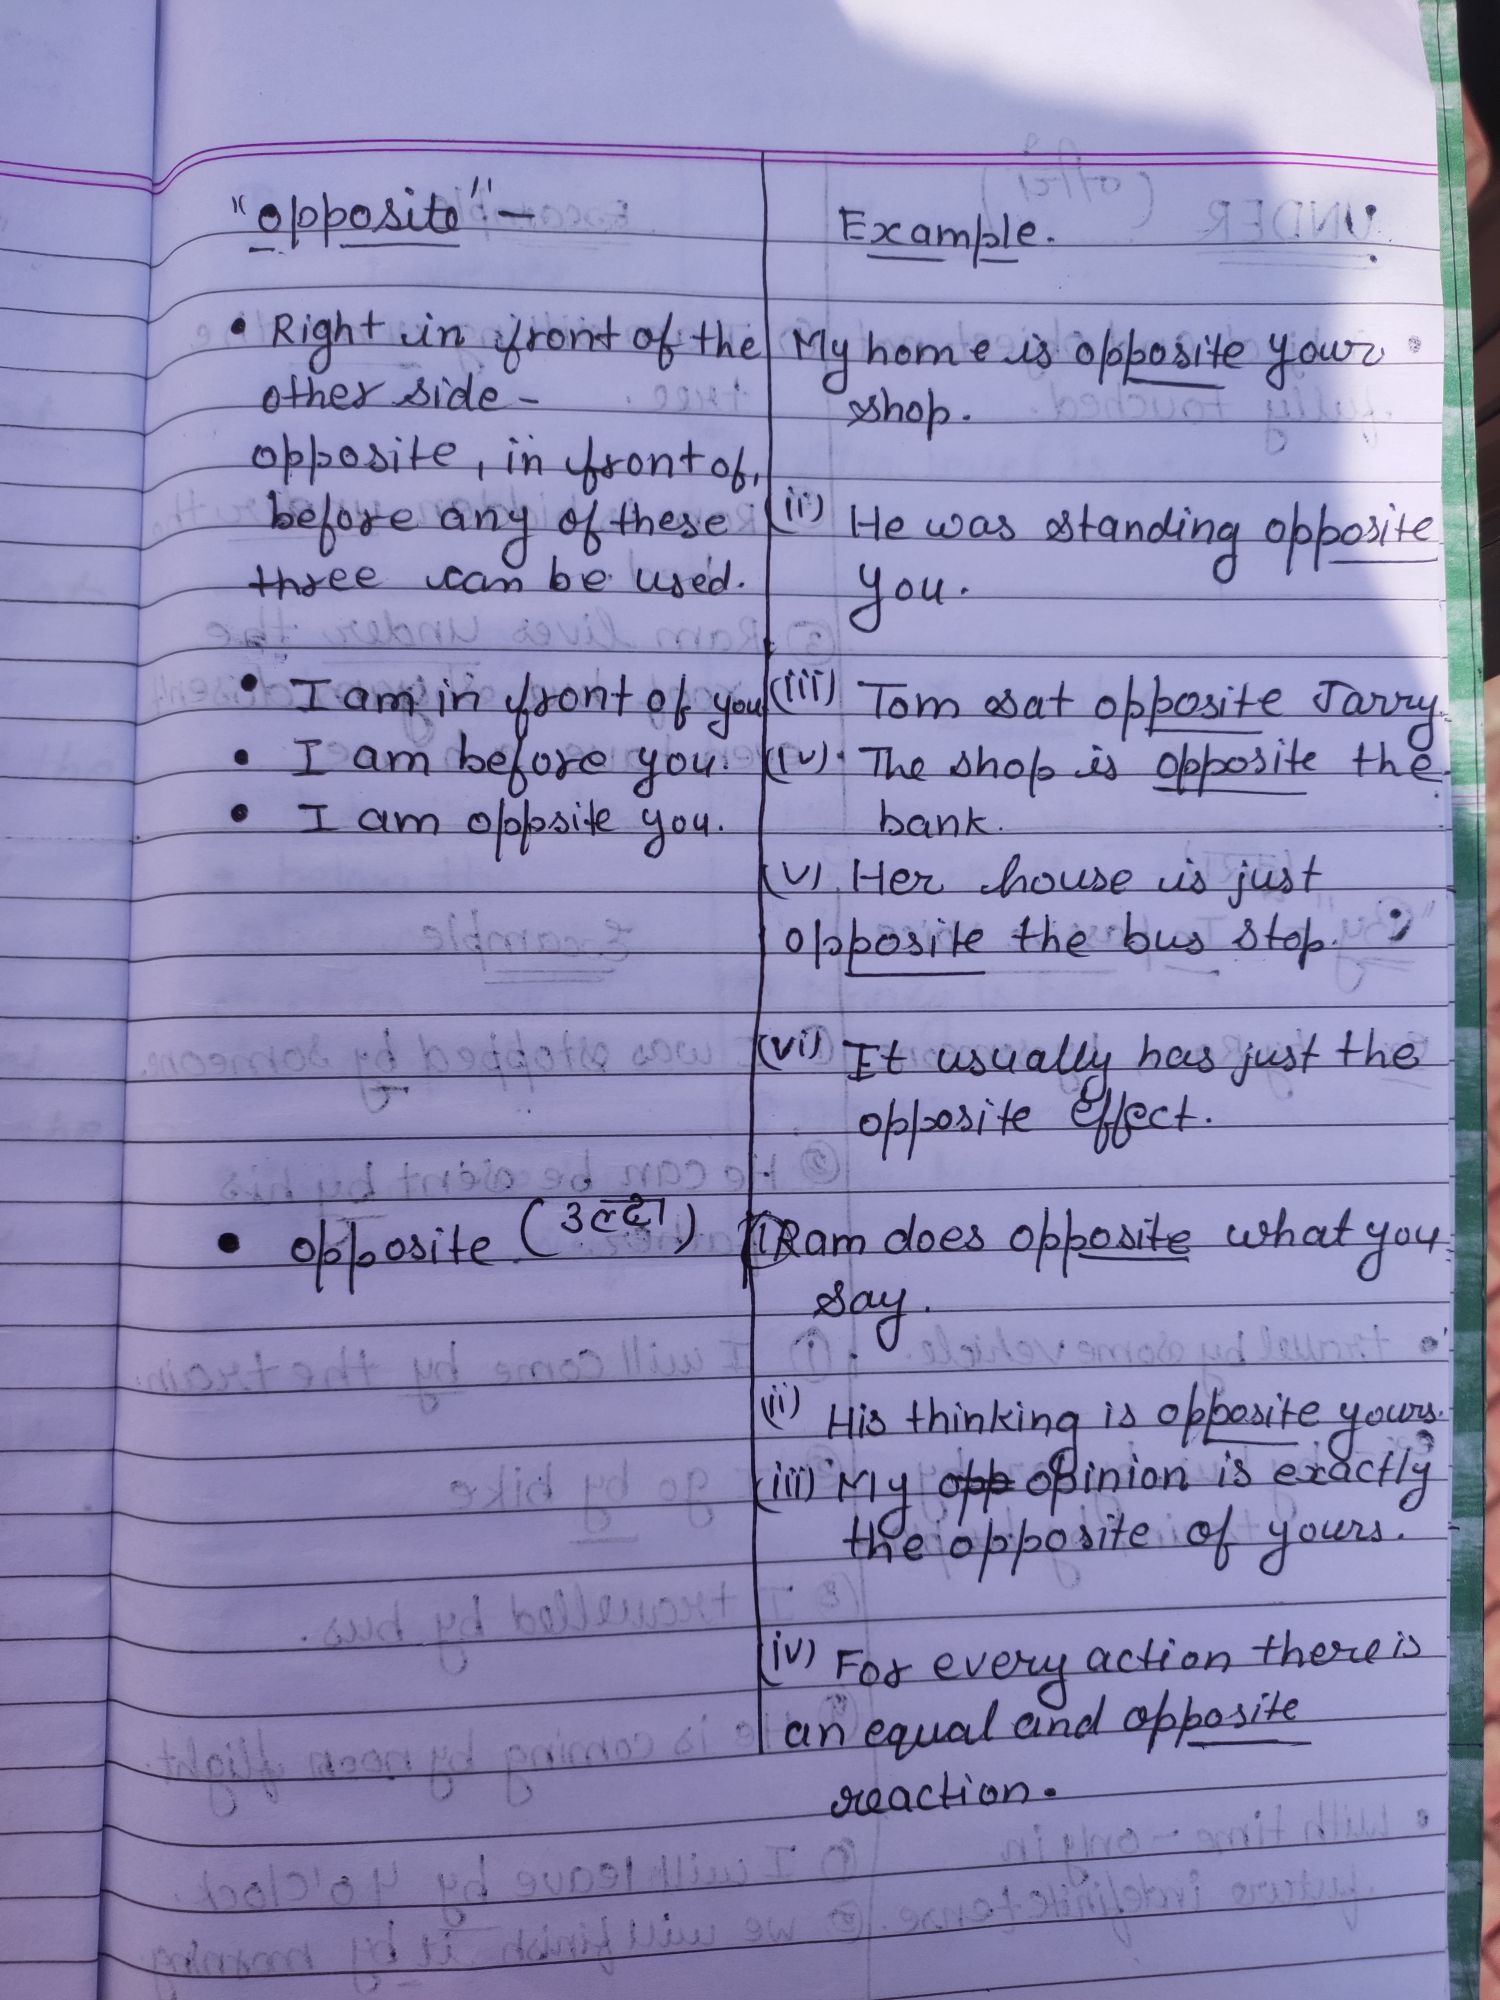 "opposite" —
• Right in front of the
other side -
opposite, in front of,
before any of these
three can be used.
• I am in front of you
• I am before you.
• I am oppsite you.
• opposite (उल्टा)
Example.
My home is opposite your
shop.
(ii) He was standing opposite
you.
(iii) Tom sat opposite Jarry.
(iv) The shop is opposite the
bank.
(v) Her house is just
opposite the bus stop.
(vi) It usually has just the
opposite effect.
① Ram does opposite what you
say.
(ii) His thinking is opposite yours.
(iii) My opp opinion is exactly
the opposite of yours.
(iv) For every action there is
an equal and opposite
reaction.